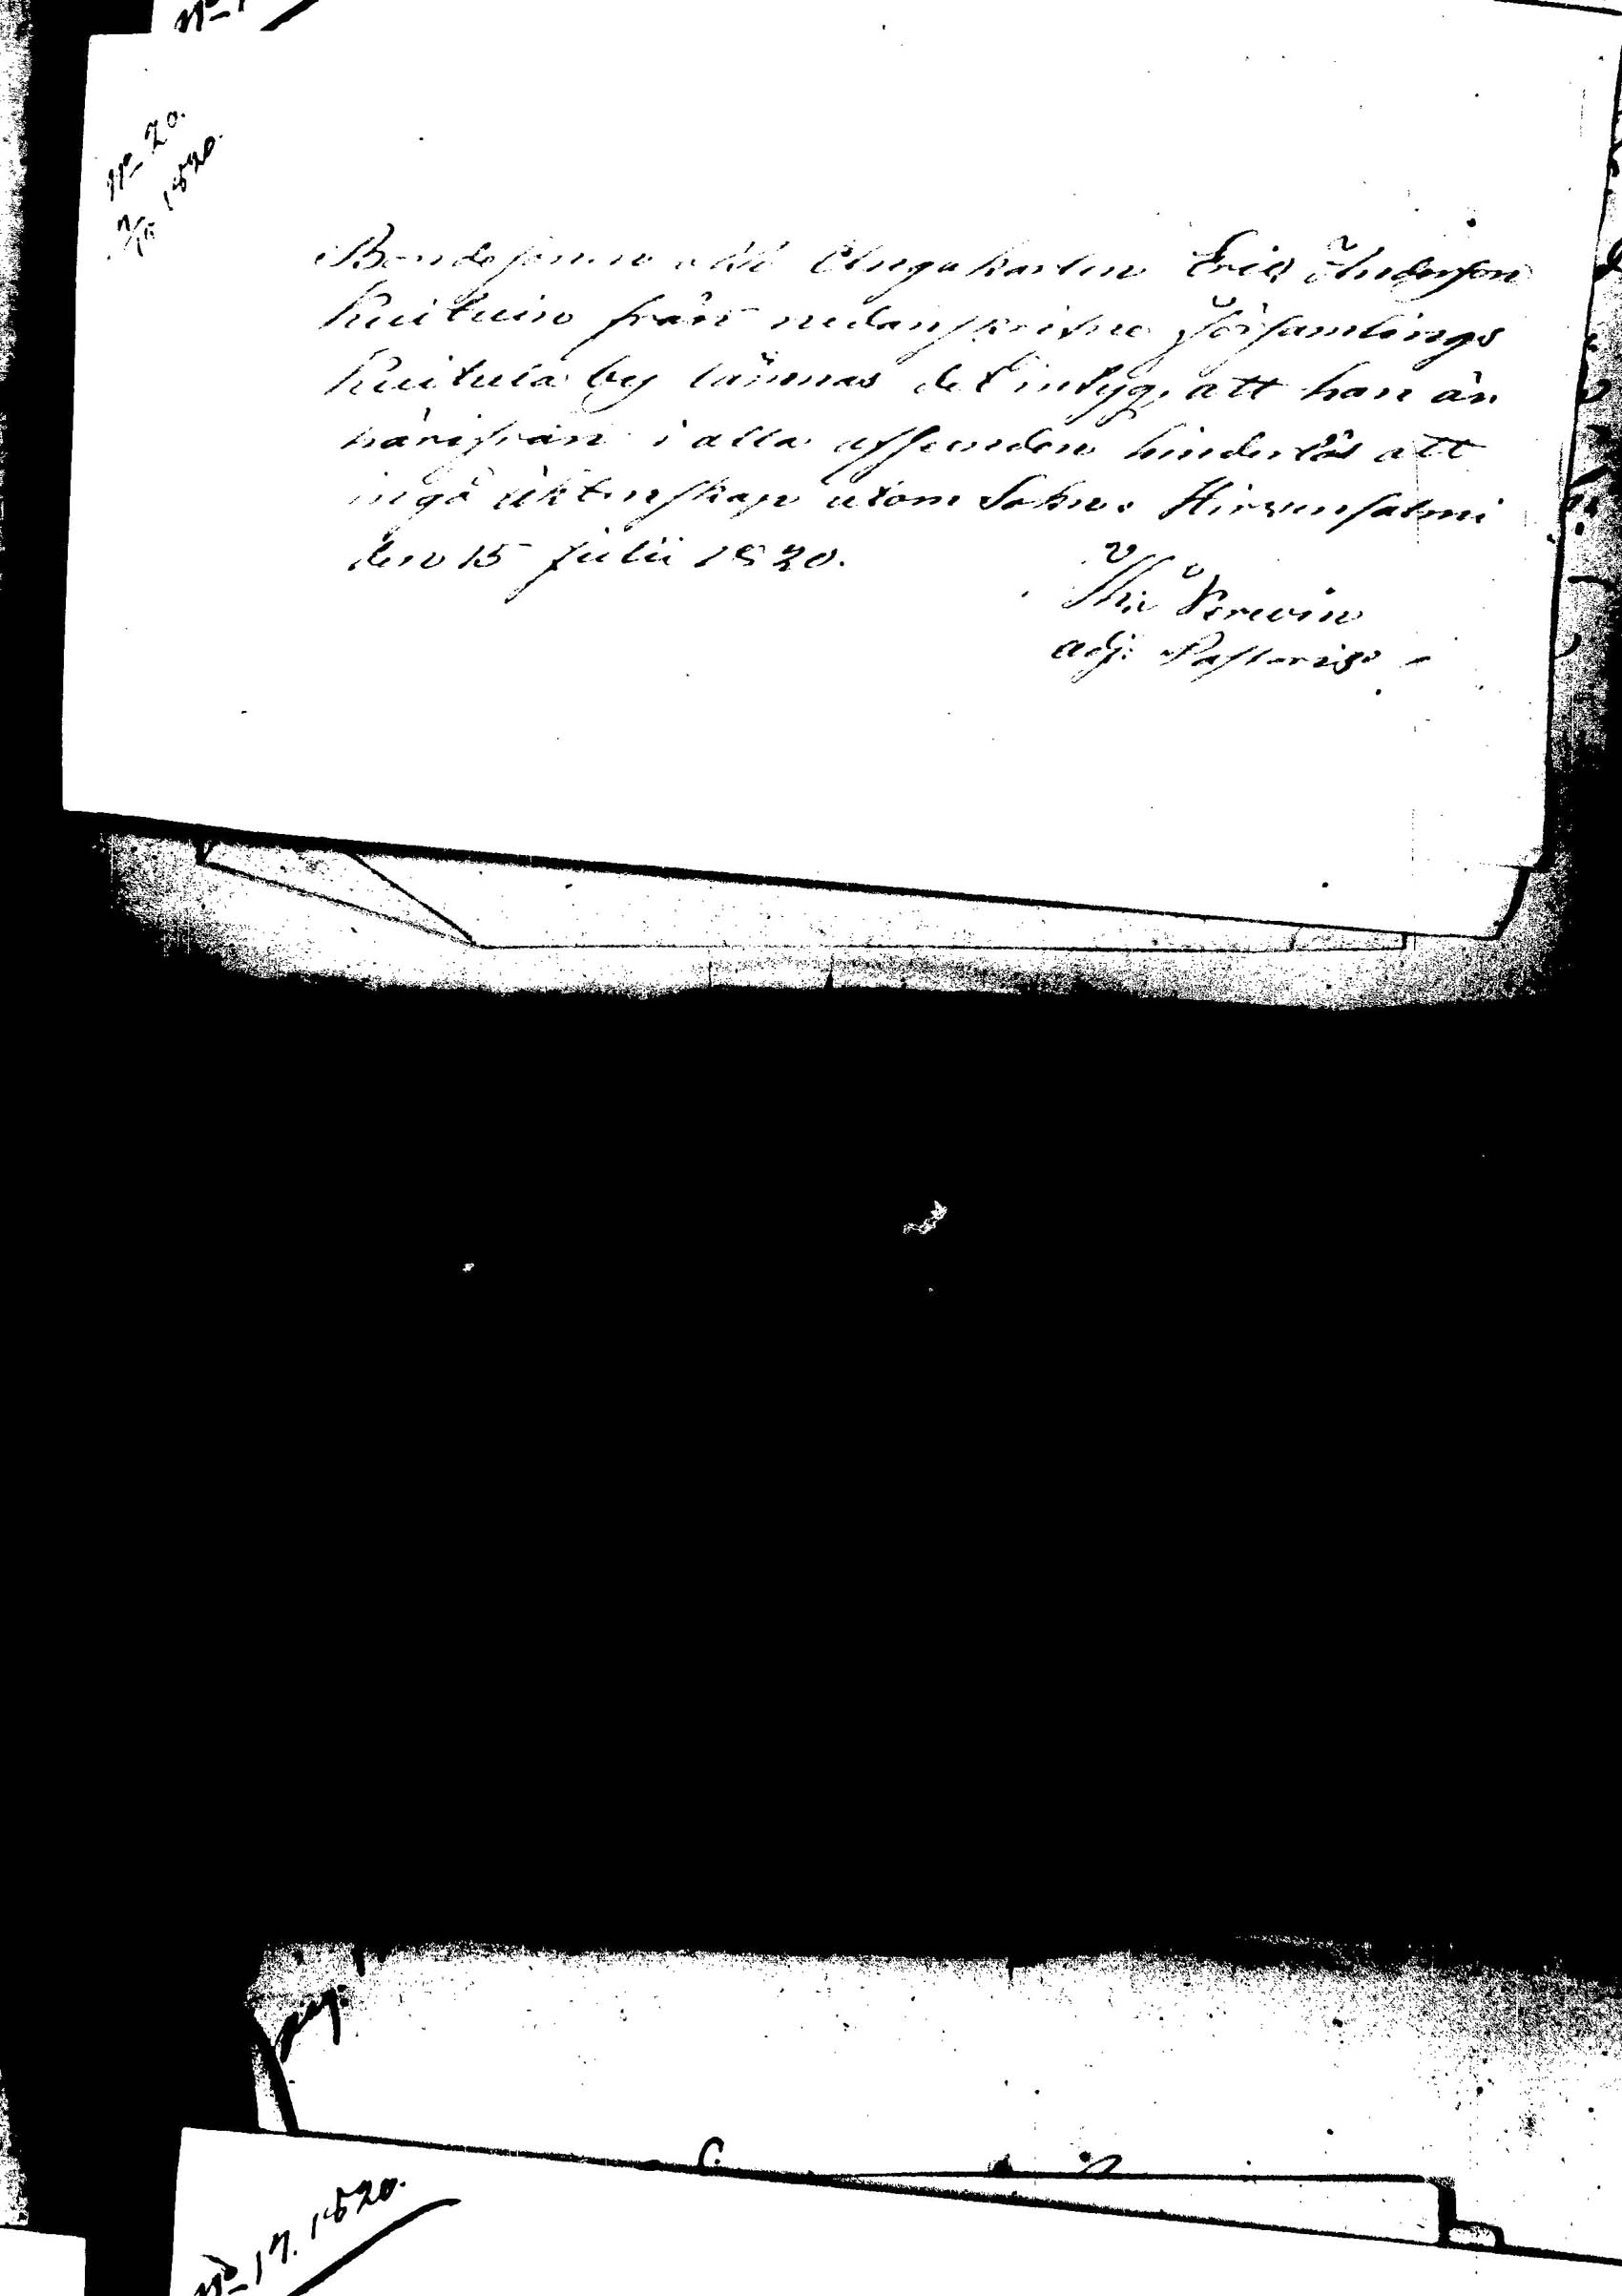 No 20.
7/10 1820.
Bondesonen Ungakarlen Eric Anderson
Kuituin från nedanskrifne Församlings
Kuitula by lämnas det intyg, att han är
härifrån i alla afseenden hinderlös att
ingå äktenskap utom Sokn. Hirvensalmi
den 15 Julii 1820.
adj. Pastoris.
No 17. 1820.